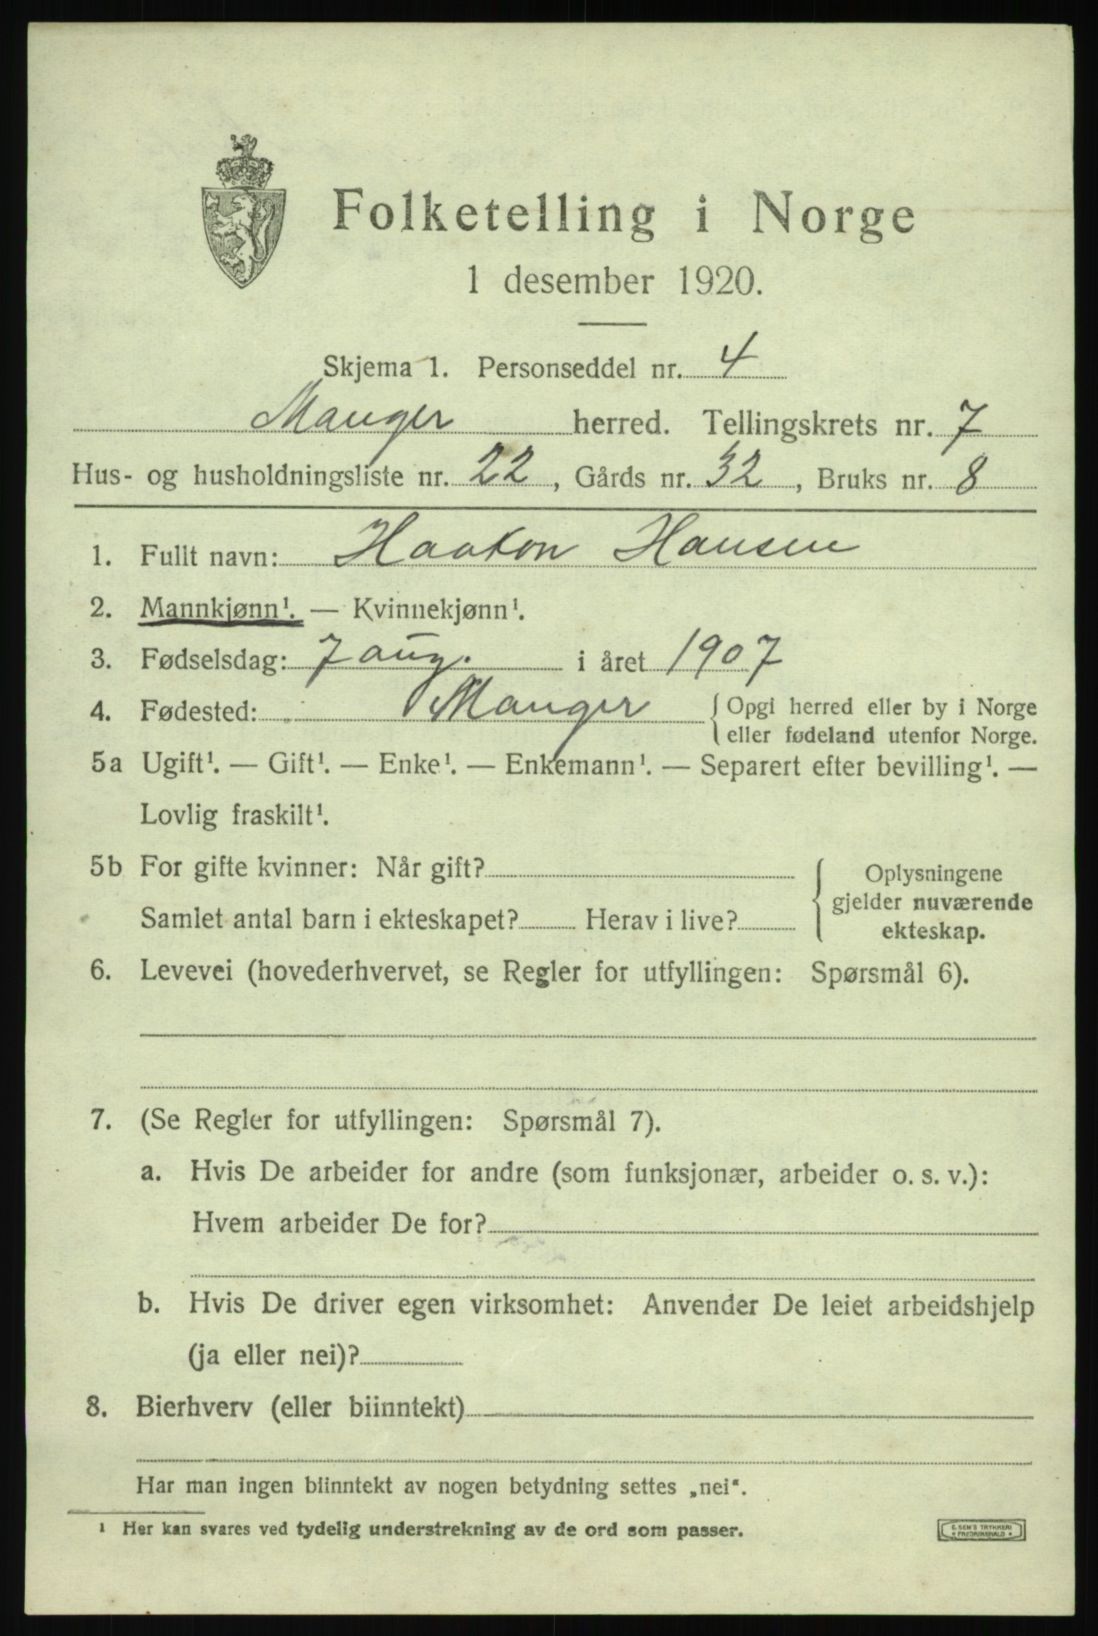 Folketelling i Norge
1 desember 1920.
Skjema 1. Personseddel nr. 4
Manger herred. Tellingskrets nr. 7
Hus- og husholdningsliste nr. 22, Gårds nr. 32, Bruks nr. 8
1. Fullt navn: Haakon Hansen
2. Mannkjønn¹. — Kvinnekjønn¹.
3. Fødselsdag: 7 aug. i året 1907
4. Fødested: Manger {Opgi herred eller by i Norge
eller fødeland utenfor Norge.
5a Ugift¹. — Gift¹. — Enke¹. — Enkemann¹. — Separert efter bevilling¹. —
Lovlig fraskilt¹.
5b For gifte kvinner: Når gift?
Samlet antal barn i ekteskapet? Herav i live?
{Oplysningene
gjelder nuværende
ekteskap.
6. Levevei (hovederhvervet, se Regler for utfyllingen: Spørsmål 6).
7. (Se Regler for utfyllingen: Spørsmål 7).
a. Hvis De arbeider for andre (som funksjonær, arbeider o. s. v.):
Hvem arbeider De for?
b. Hvis De driver egen virksomhet: Anvender De leiet arbeidshjelp
(ja eller nei)?
8. Bierhverv (eller biinntekt)
Har man ingen biinntekt av nogen betydning settes „nei“.
¹ Her kan svares ved tydelig understrekning av de ord som passer.
E. SEM'S TRYKKERI
FREDRIKSHALD